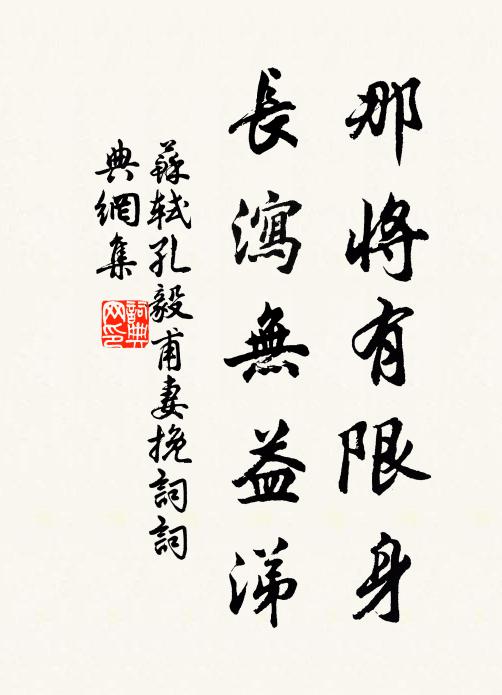 那將有限身
長瀉無益涕
蘇軾孔毅甫妻挽詞詞
典網集
詞典
网印